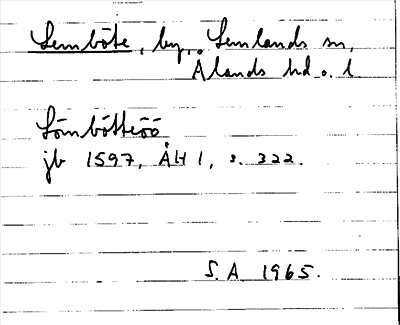 Lemböte, by, Lemlands sn,
Ålands hd o. l
Lömbötteöö
jb 1597, ÅH 1, s. 322.
S. A. 1965.